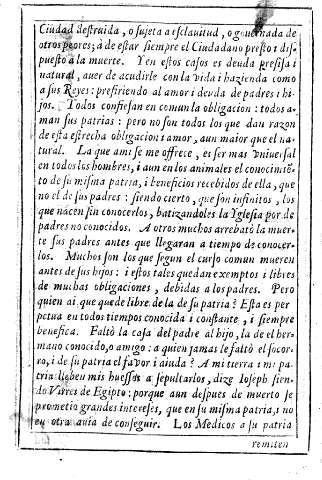 Ciudad destruida, o sujeta a esclavitud, o governada de
otros peores; à de estar siempre el Ciudadano presto i dis-
puesto à la muerte. Y en estos casos es deuda presisa i
natural, aver de acudirle con la vida i hazienda como
a sus Reyes: prefiriendo al amor i deuda de padres i hi-
jos. Todos confiesan en comun la obligacion: todos a-
man sus patrias: pero no son todos los que dan razon
de esta estrecha obligacion i amor, aun maior que el na-
tural. La que ami se me offrece, es ser mas Vniuersal
en todos los hombres, i aun en los animales el conocimiẽ-
to de su misma patria, i beneficios recebidos de ella, que
no el de sus padres: siendo cierto, que son infinitos, los
que nacen sin conocerlos, batizandoles la Yglesia por de
padres no conocidos. A otros muchos arrebatò la muer-
te sus padres antes que llegaran a tiempo de conocer-
los. Muchos son los que segun el curso comun mueren
antes de sus hijos: i estos tales quedan exemptos i libres
de muchas obligaciones, debidas a los padres. Pero
quien ai que quede libre de la de su patria? Esta es per
petua en todos tiempos conocida i constante, i siempre
benefica. Faltò la casa del padre al hijo, la de el her-
mano conocido, o amigo: a quien jamas le faltò el socor-
ro, i de su patria el favor i aiuda? A mi tierra i mi pa-
tria lleben mis huessos a sepultarlos, dize Ioseph sien-
do Virei de Egipto: porque aun despues de muerto se
prometio grandes intereses, que en su misma patria, i no
en otra auia de conseguir. Los Medicos a su patria
remiten